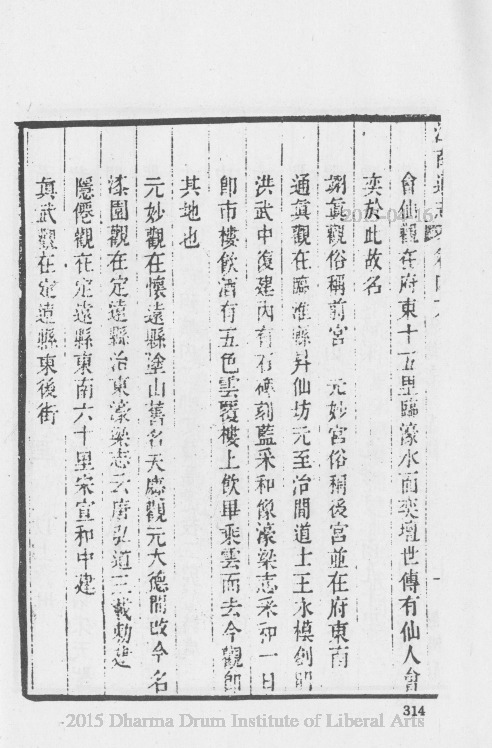 會仙觀在府東十五里臨濠水面奕壇世傳有仙人會
奕於此故名
朝眞觀俗稱前宮 元妙宮俗稱後宮並在府東南
通眞觀在臨淮縣昇仙坊元至治間道士王永模創
洪武中復建内有石碑刻藍采和像濠梁志采和一日
卽市樓飲酒有五色雲覆樓上飲畢乘雲而去今觀卽
其地也
元妙觀在懷遠縣塗山舊名天慶觀元大德間改今名
漆園觀在定遠縣治東濠梁志云唐弘道二載勅建
隱僊觀在定遠縣東南六十里宋宣和中建
眞武觀在定遠縣東後街
314
2015 Dharma Drum Institute of Liberal Arts